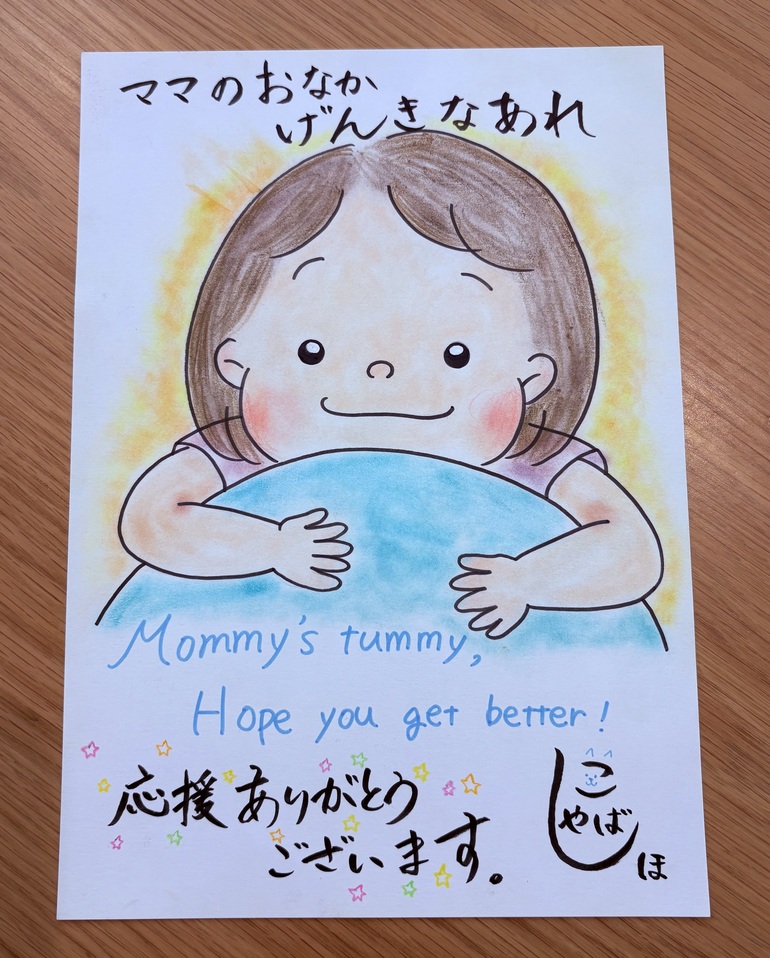 ママのおなか
げんきなあれ
Mommy's tummy,
Hope you get better!
応援ありがとう
ございます。